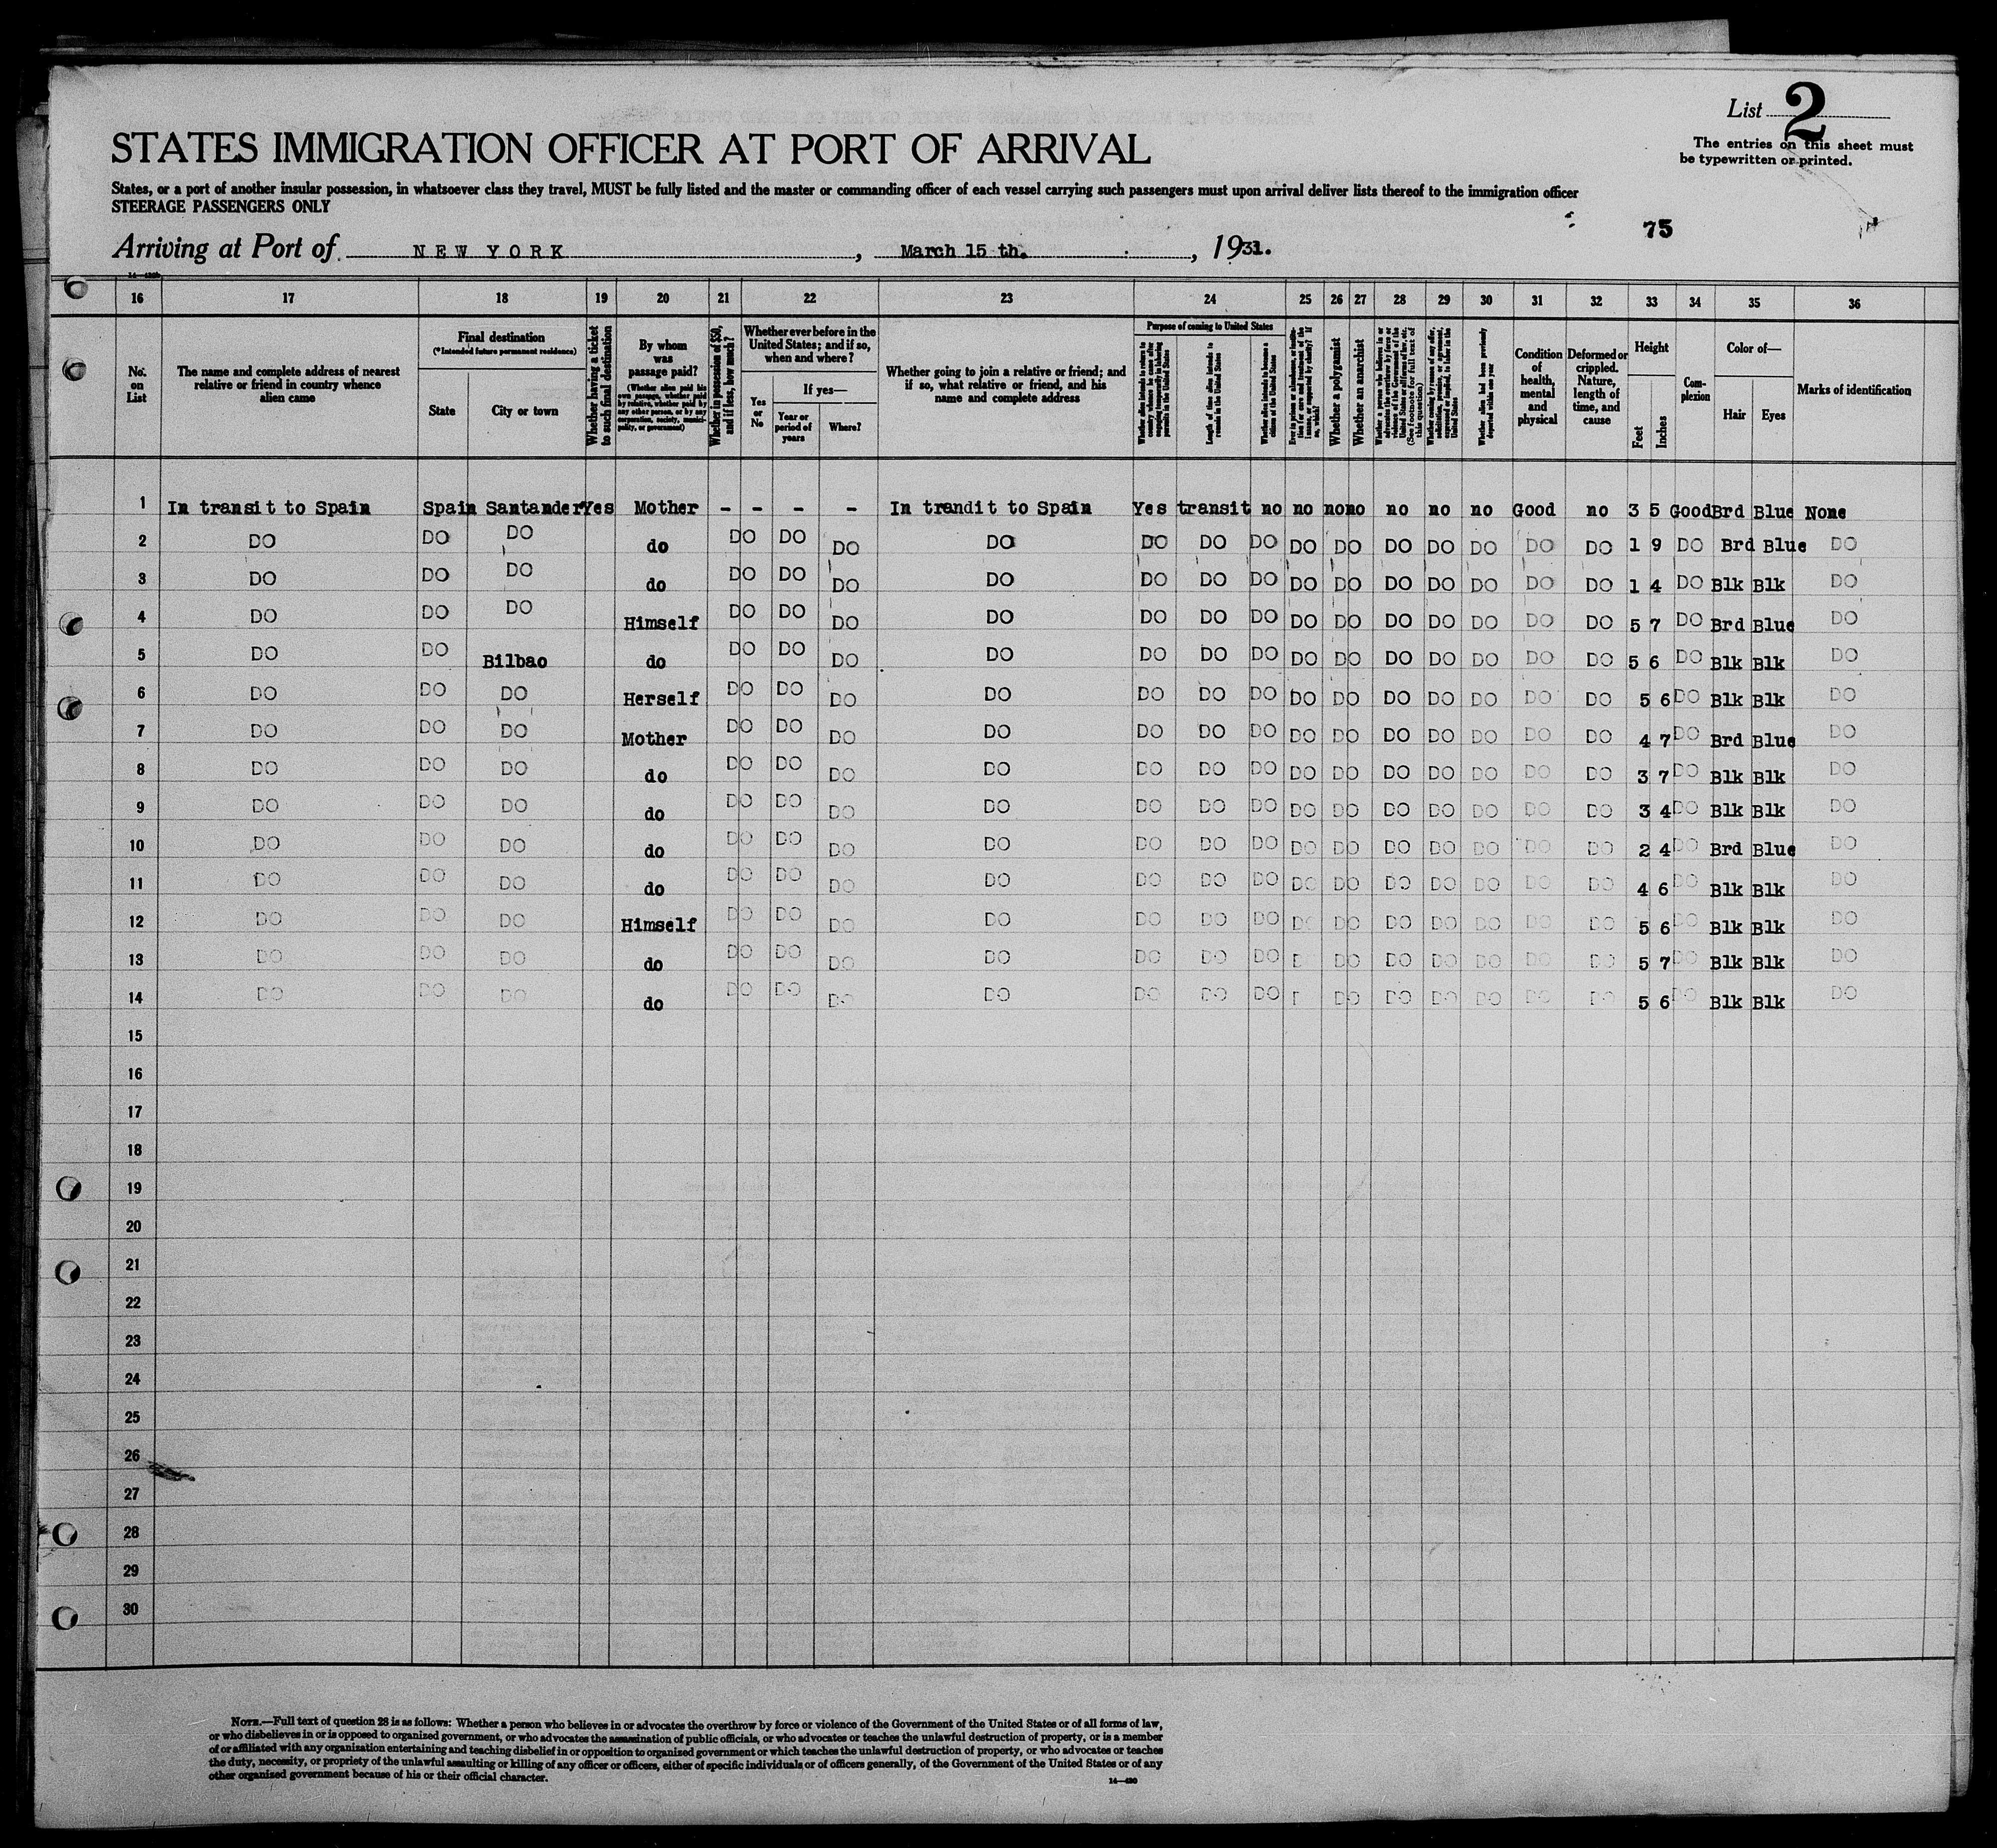 List 2
The entries on this sheet must
be typewritten or printed.
STATES IMMIGRATION OFFICER AT PORT OF ARRIVAL
States, or a port of another insular possession, in whatsoever class they travel, MUST be fully listed and the master or commanding officer of each vessel carrying such passengers must upon arrival deliver lists thereof to the immigration officer
STEERAGE PASSENGERS ONLY
75
Arriving at Port of NEW YORK, March 15 th., 1931.
16 17 18 19 20 21 22 23 24 25 26 27 28 29 30 31 32 33 34 35 36
No. on List
The name and complete address of nearest relative or friend in country whence alien came
Final destination
(*Intended future permanent residence)
State
City or town
Whether having a ticket to such final destination
By whom was passage paid?
(Whether alien paid his own passage, whether paid by relative, whether paid by any other person, or by any corporation, society, municipality, or government)
Whether in possession of $50, and if less, how much?
Whether ever before in the United States; and if so, when and where?
Yes or No
If yes—
Year or period of years
Where?
Whether going to join a relative or friend; and if so, what relative or friend, and his name and complete address
Purpose of coming to United States
Length of time alien intends to remain in the United States
Whether alien intends to become a citizen of the United States
Whether a polygamist
Whether an anarchist
Whether alien had been previously deported within one year
Condition of health, mental and physical
Deformed or crippled. Nature, length of time, and cause
Height
Feet
Inches
Complexion
Color of—
Hair
Eyes
Marks of identification
1 In transit to Spain Spain Santander Yes Mother - - - - In trandit to Spain Yes transit no no no no no no no Good no 3 5 Good Brd Blue None
2 DO DO DO do DO DO DO DO DO DO DO DO DO DO DO DO DO DO 1 9 DO Brd Blue DO
3 DO DO DO do DO DO DO DO DO DO DO DO DO DO DO DO DO DO 1 4 DO Blk Blk DO
4 DO DO DO Himself DO DO DO DO DO DO DO DO DO DO DO DO DO DO 5 7 DO Brd Blue DO
5 DO DO Bilbao do DO DO DO DO DO DO DO DO DO DO DO DO DO DO 5 6 DO Blk Blk DO
6 DO DO DO Herself DO DO DO DO DO DO DO DO DO DO DO DO DO DO 5 6 DO Blk Blk DO
7 DO DO DO Mother DO DO DO DO DO DO DO DO DO DO DO DO DO DO 4 7 DO Brd Blue DO
8 DO DO DO do DO DO DO DO DO DO DO DO DO DO DO DO DO DO 3 7 DO Blk Blk DO
9 DO DO DO do DO DO DO DO DO DO DO DO DO DO DO DO DO DO 3 4 DO Blk Blk DO
10 DO DO DO do DO DO DO DO DO DO DO DO DO DO DO DO DO DO 2 4 DO Brd Blue DO
11 DO DO DO do DO DO DO DO DO DO DO DO DO DO DO DO DO DO 4 6 DO Blk Blk DO
12 DO DO DO Himself DO DO DO DO DO DO DO DO DO DO DO DO DO DO 5 6 DO Blk Blk DO
13 DO DO DO do DO DO DO DO DO DO DO DO DO DO DO DO DO 5 7 DO Blk Blk DO
14 DO DO DO do DO DO DO DO DO DO DO DO DO DO DO DO DO 5 6 DO Blk Blk DO
15
16
17
18
19
20
21
22
23
24
25
26
27
28
29
30
NOTE.—Full text of question 28 is as follows: Whether a person who believes in or advocates the overthrow by force or violence of the Government of the United States or of all forms of law,
or who disbelieves in or is opposed to organized government, or who advocates the assassination of public officials, or who advocates or teaches the unlawful destruction of property, or is a member
of or affiliated with any organization entertaining and teaching disbelief in or opposition to organized government or which teaches the unlawful destruction of property, or who advocates or teaches
the duty, necessity, or propriety of the unlawful assaulting or killing of any officer or officers, either of specific individuals or of officers generally, of the Government of the United States or of any
other organized government because of his or their official character.
14—480